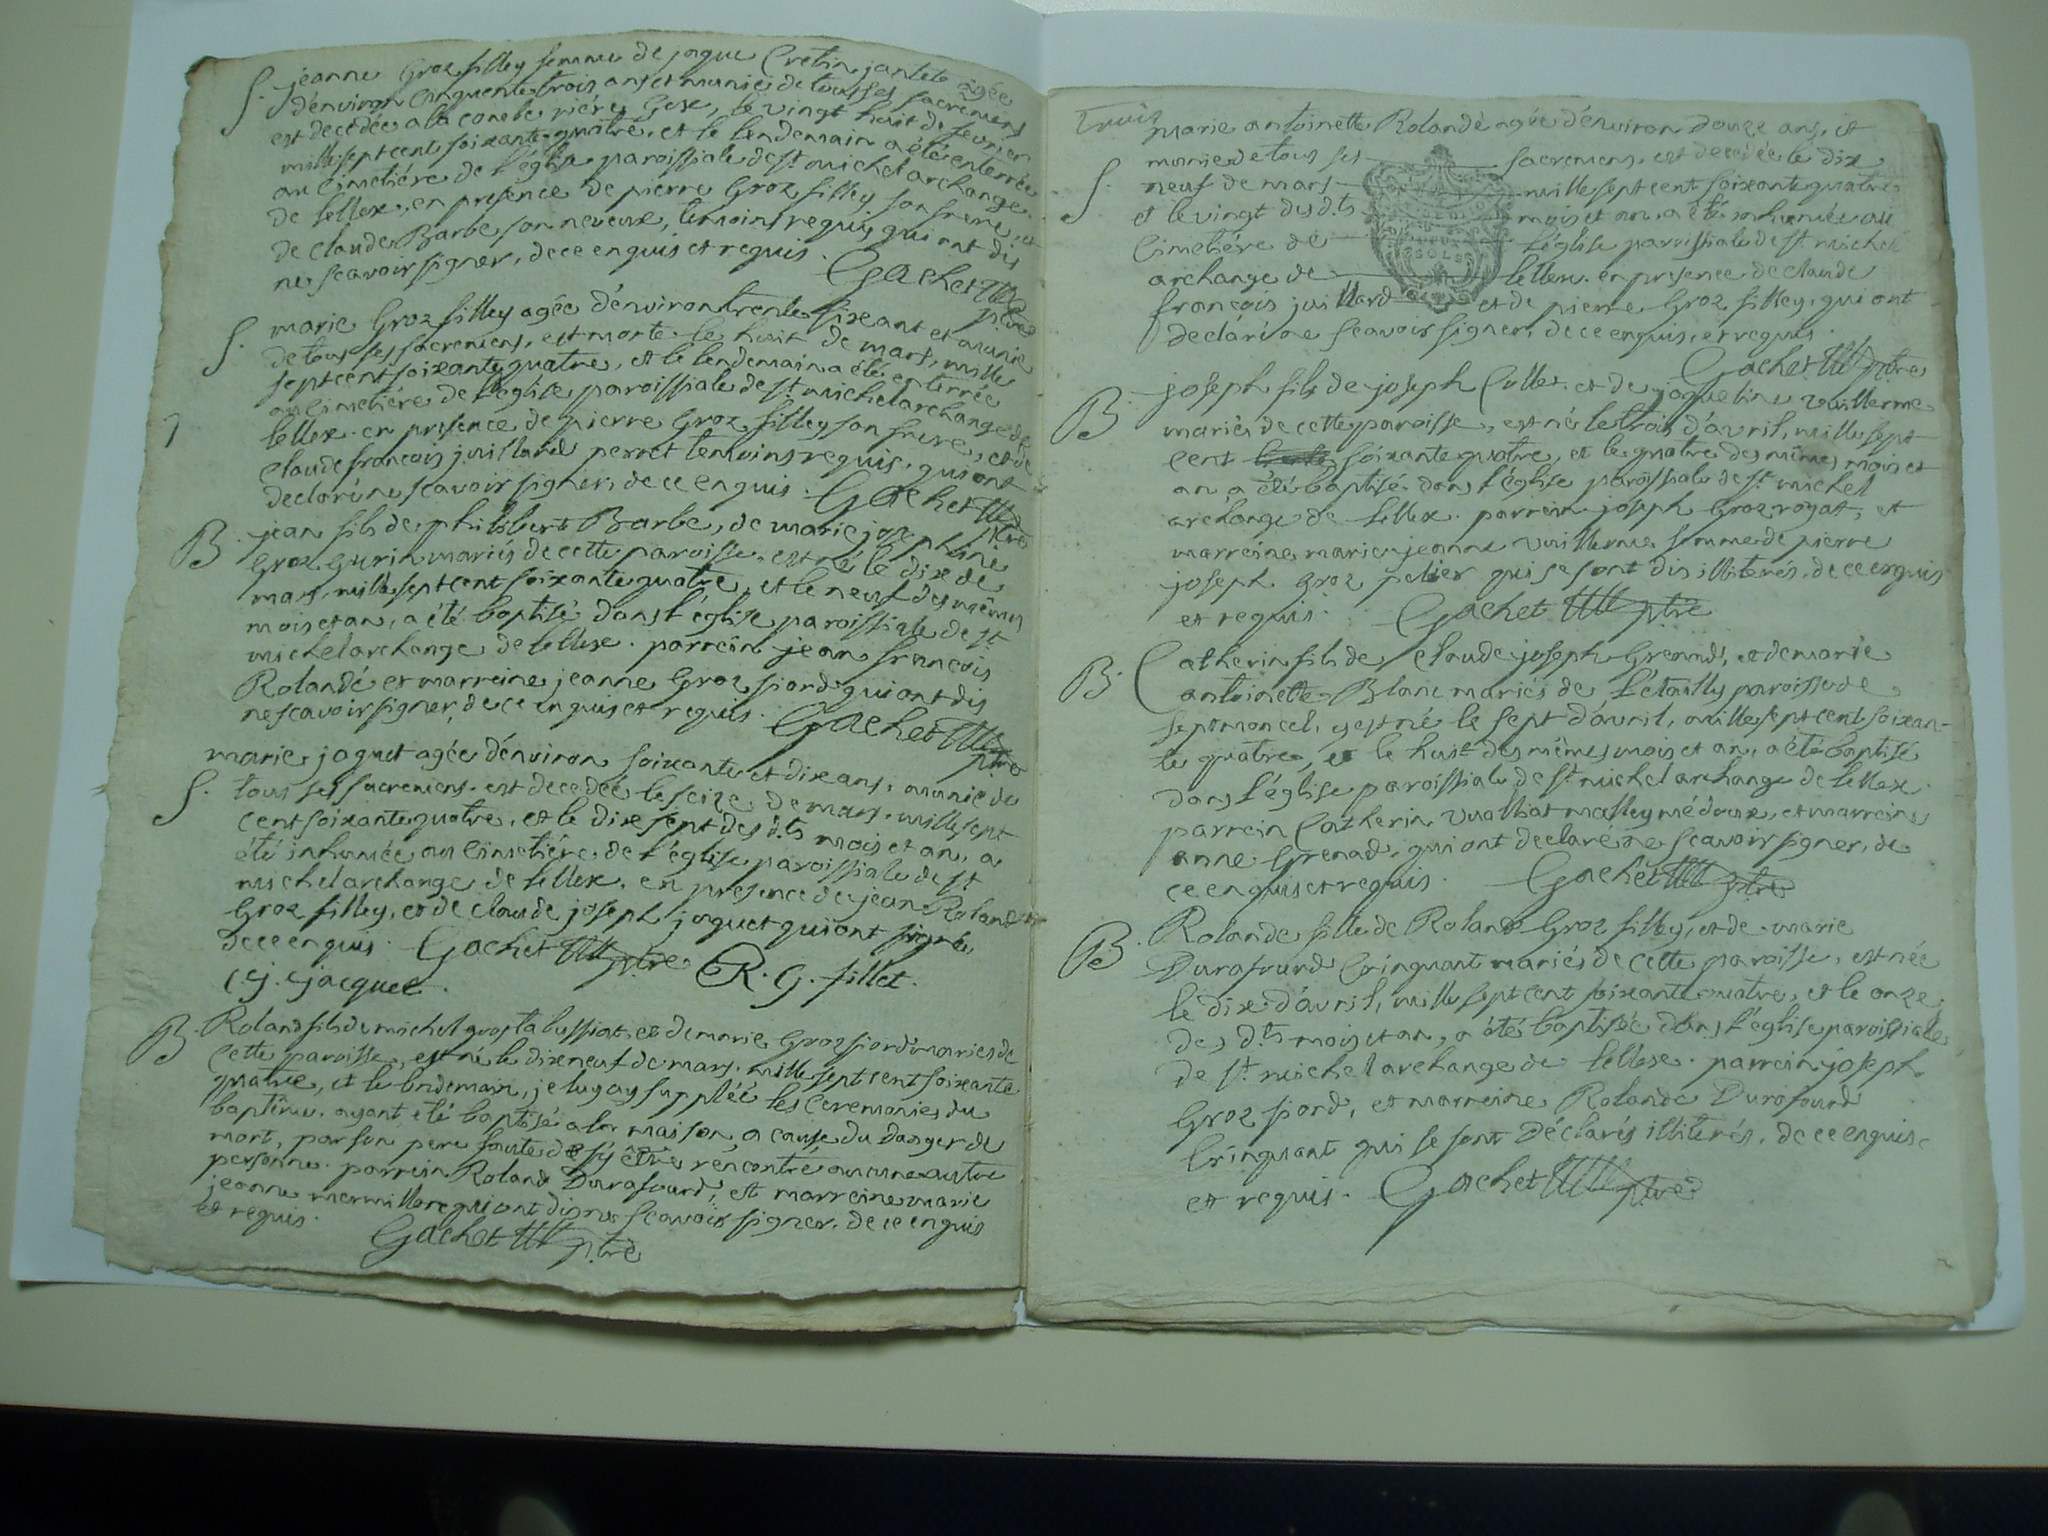 S. jeanne Groz filley femme de jaque Cretin jantet agée
d'environ cinquente trois ans et munie de tous ses sacremens
est decedée a la combe rière Gex, le vingt huit de fevrier
mille sept cent soixante quatre, et le lendemain a été enterrée
au cimetière de l'église paroissiale de st michel archange
de lellex, en presence de pierre Groz filley son frere, et
de claude Barbe son neveux, temoins requis, qui ont dis
ne scavoir signer, de ce enquis et requis.
Gachet ptre
S. marie Groz filley agée d'environ trente six ans et munie
de tous ses sacremens, est morte le huit de mars, mille
sept cent soixante quatre, et le lendemain a été enterrée
au cimetière de l'église paroissiale de st michel archange de
lellex. en presence de pierre Groz filley son frere, et de
claude francois juilland perret temoins requis, qui ont
declaré ne scavoir signer, de ce enquis. Gachet ptre
B. jean fils de philibert Barbe, de marie josephine
Groz Gurin mariés de cette paroisse est né le dix de
mars, mille sept cent soixante quatre, et le neuf des mêmes
mois et an, a été baptisé dans l'église paroissiale de st
michel archange de lellex. parrein jean francois
Rolandé et marreine jeanne Groz fiord qui ont dis
ne scavoir signer, de ce enquis et requis. Gachet ptre
marie jaquet agée d'environ soixante et dix ans, munie de
S. tous ses sacremens. est decedée le seize de mars, mille sept
cent soixante quatre, et le dix sept des d.ts mois et an, a
été inhumée au cimetière de l'église paroissiale de st
michel archange de lellex, en presence de jean Roland
Groz filley, et de claude joseph jaquet qui ont signé,
de ce enquis. Gachet ptre R. G. fillet.
C. j. jacquet.
B. Roland fils de michel gros la bussiat, et de marie Groz fiord mariés de
cette paroisse, est né le dix neuf de mars, mille sept cent soixante
quatre, et le lendemain, je luy ay supplée les ceremonies du
baptême, ayant été baptisé a la maison, a cause du danger de
mort, par son pere faute de s'y être rencontré aucune autre
personne. parrein Roland Durafourd, et marreine marie
jeanne mermillon qui ont dis ne scavoir signer, de ce enquis
et requis.
Gachet ptre
Trois
marie antoinette Rolandé agée d'environ douze ans, et
munie de tous ses sacremens, est decedée le dix
S. neuf de mars mille sept cent soixante quatre
et le vingt des d.ts mois et an, a été inhumée au
cimetière de l'église paroissiale de st michel
archange de lellex. en presence de claude
françois juilland et de pierre Groz filley, qui ont
declaré ne scavoir signer, de ce enquis, et requis.
Gachet ptre
joseph fils de joseph Cullet et de jaqueline vuillerme
B. mariés de cette paroisse, est né le trois d'avril, mille sept
cent soixante quatre, et le quatre des mêmes mois et
an, a été baptisé dans l'église paroissiale de st michel
archange de lellex. parrein joseph Groz royat, et
marreine marie jeanne vuillerme femme de pierre
joseph Groz pelier qui se sont dis illiterés, de ce enquis
et requis. Gachet ptre
B. Catherin fils de claude joseph Grenard, et de marie
antoinette Blanc mariés de l'étailly paroisse de
septmoncel, est né le sept d'avril, mille sept cent soixan-
te quatre, et le huit des mêmes mois et an, a été baptisé
dans l'église paroissiale de st michel archange de lellex.
parrein Catherin vualliat malley médoux, et marreine
anne Grenard, qui ont declaré ne scavoir signer, de
ce enquis et requis. Gachet ptre
B. Rolande fille de Roland Groz filley, et de marie
Durafourd Cringuant mariés de cette paroisse, est née
le dix d'avril, mille sept cent soixante quatre, et le onze
des d.ts mois et an, a été baptisée dans l'église paroissiale
de st michel archange de lellex. parrein joseph
Groz fiord, et marreine Rolande Durafourd
Cringuant qui se sont déclarés illiterés, de ce enquis
et requis. Gachet ptre